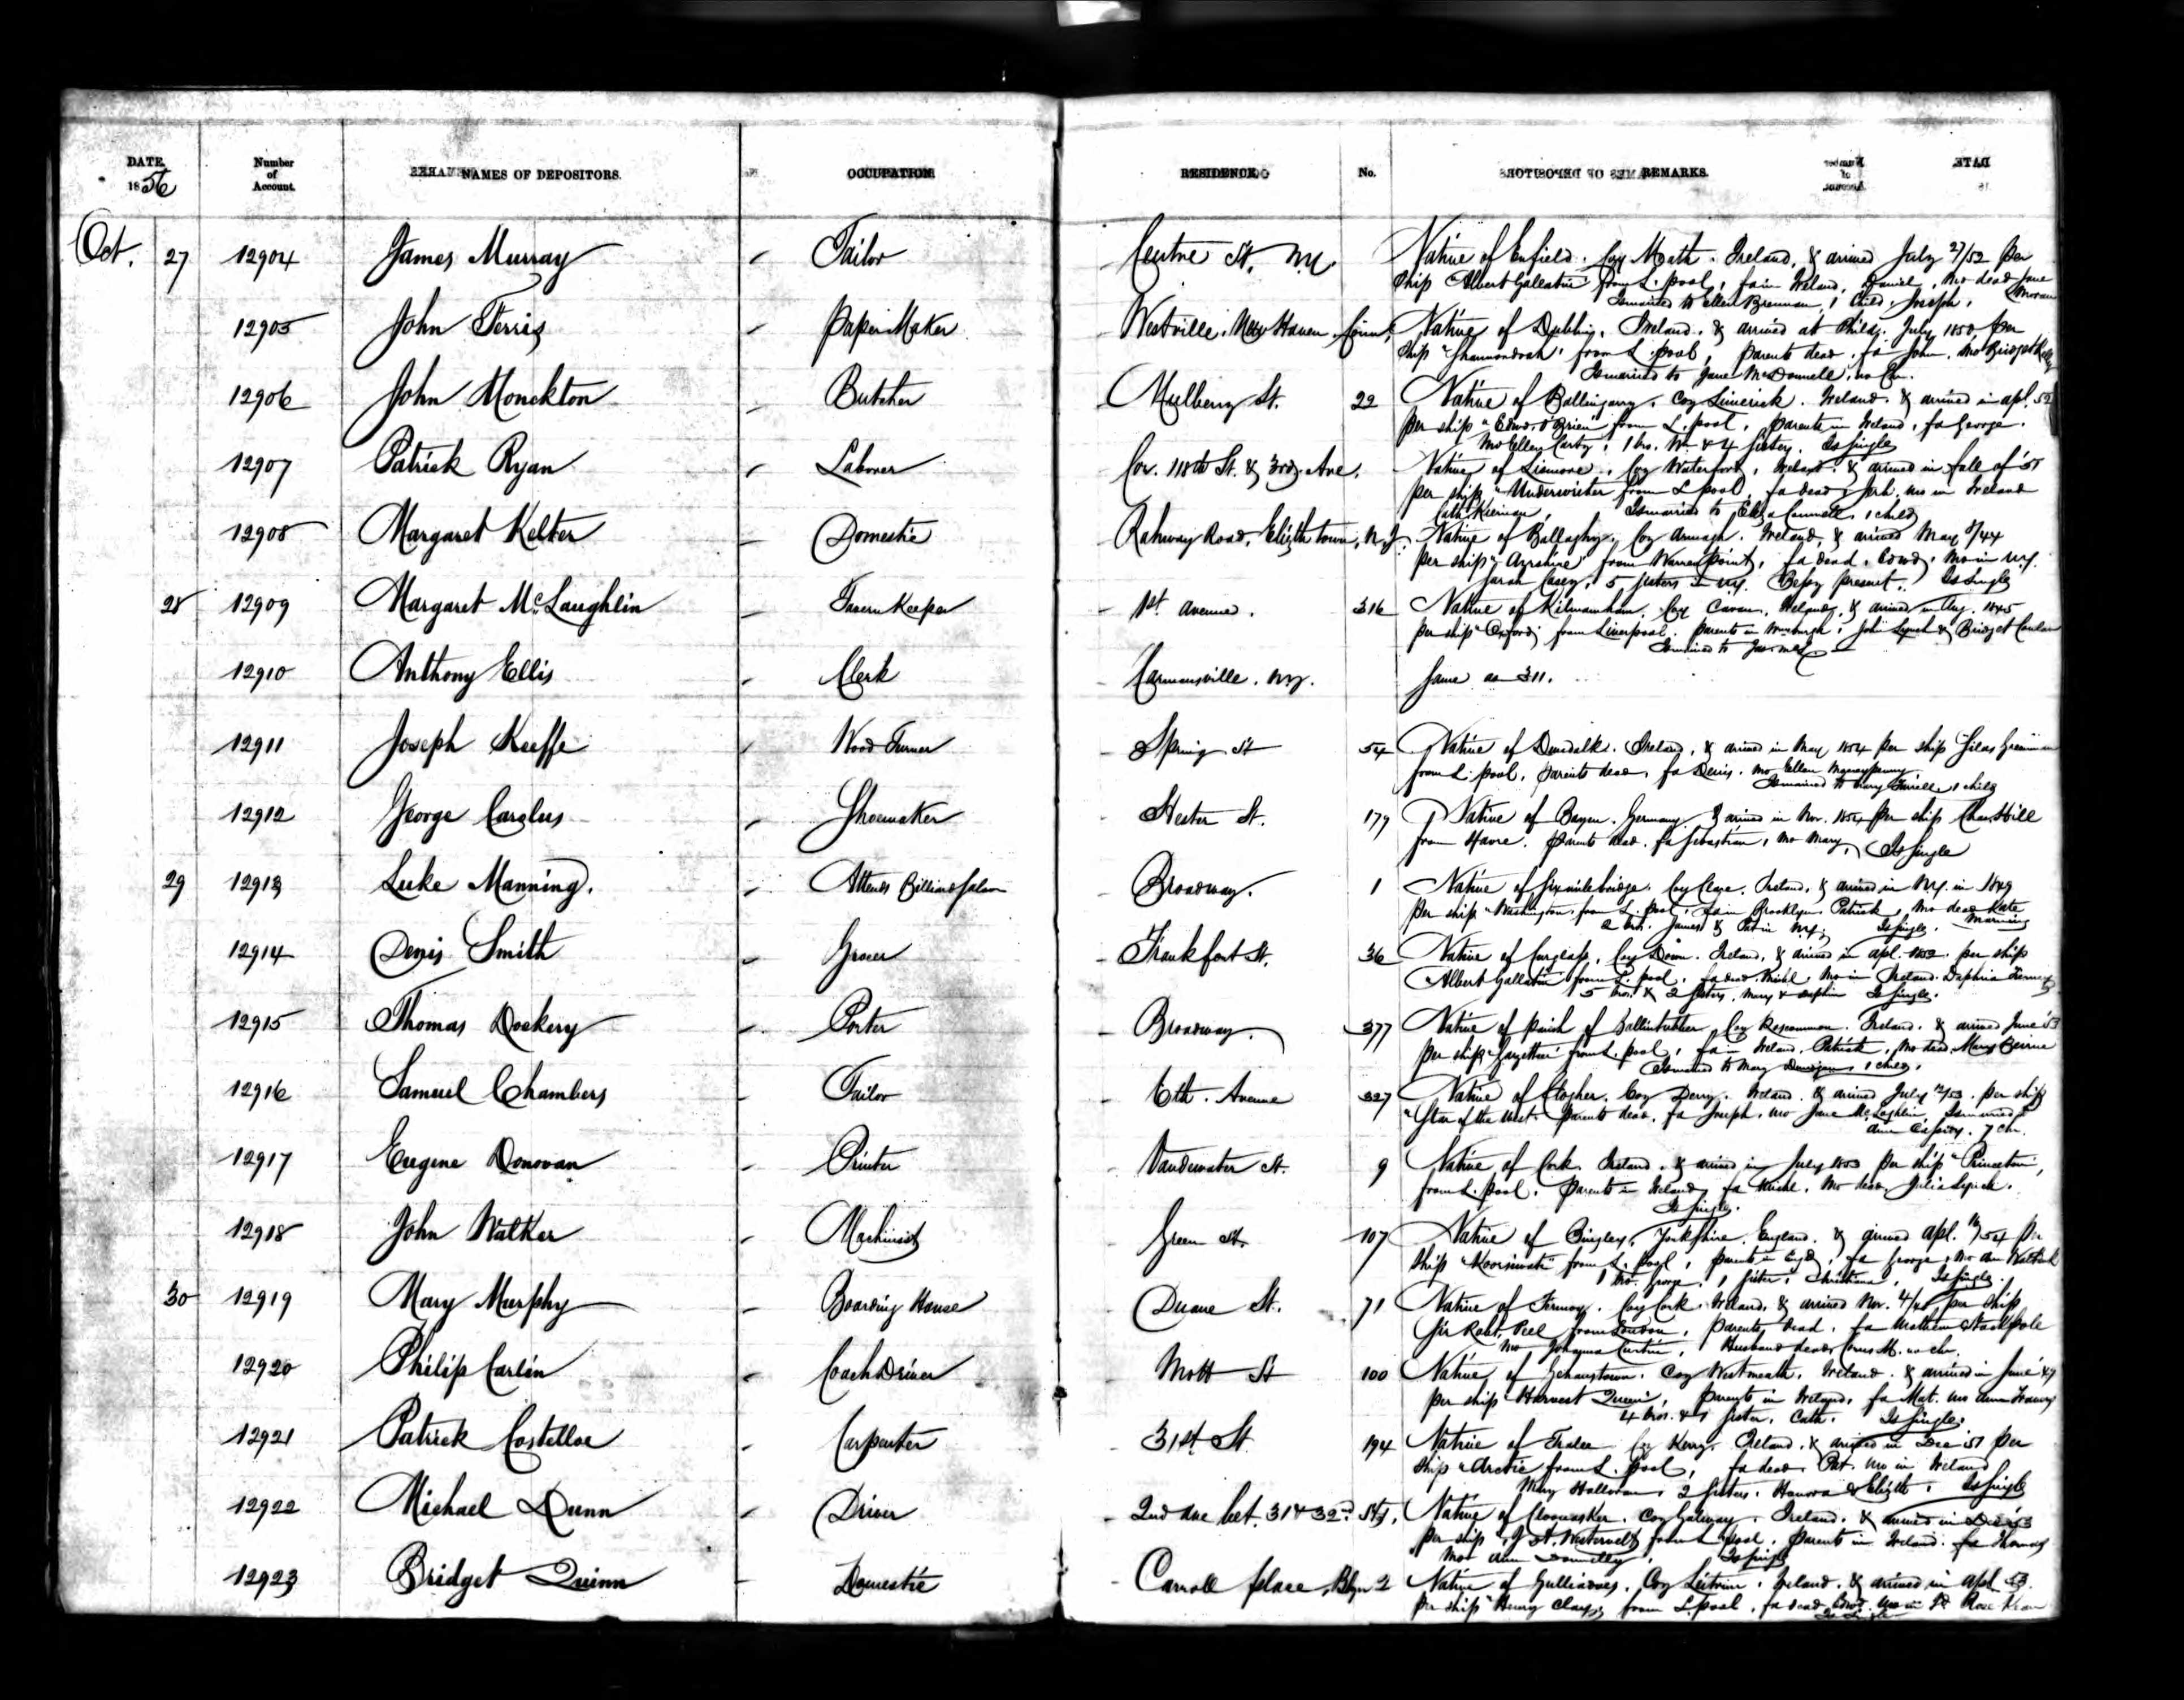 DATE 1856 Number of Account. NAMES OF DEPOSITORS. OCCUPATION RESIDENCE No. REMARKS.
Oct. 27 12904 James Murray Tailor Centre St. N.Y. Native of Enfield. Coy Meath. Ireland, & arrived July 27/52 per
Ship Albert Gallatin from L. pool, fa in Ireland, Daniel, mo dead Jane Moran
Is married to Ellen Brennan, 1 Child, Joseph.
12905 John Ferris Paper Maker Westville. New Haven. Conn. Native of Dublin. Ireland. & arrived at Philda. July 1850 per
Ship from L. pool, parents dead. fa John. mo Bridget Kelly
Is married to Jane McDonnell, no Chn.
12906 John Monckton Butcher Mulberry St. 22 Native of Ballingarry, Coy Limerick. Ireland. & arrived in apl. 52
per ship "Edwd. O'Brien" from L. pool, parents in Ireland, fa George.
mo Ellen Carty, 1 bro. Wm & 4 sisters. Is single
12907 Patrick Ryan Laborer Cor. 118th St. & 3rd Ave. Native of Lismore, Coy Waterford, Ireland. & arrived in fall of '51
per ship "Underwriter from L pool, fa dead, mo in Ireland
Cath. Kiernan, Is married to Eliza Cannell, 1 child
12908 Margaret Kelter Domestic Rahway Road, Elizth town, N.J. Native of Ballaghy, Coy Armagh. Ireland, & arrived May 8/44
per ship "Ayrshire" from Warrenpoint, fa dead, Edwd, mo in N.Y.
Sarah Casey, 5 sisters in N.Y. Bessy present. Is single
28 12909 Margaret McLaughlin Tavern Keeper 1st avenue. 316 Native of Kilnamham, Coy Cavan, Ireland, & arrived in Aug. 1845
per ship "Oxford" from Liverpool. parents in, John Lynch & Bridget
Is married to Jas. McL
12910 Anthony Ellis Clerk Carmansville. N.Y. Same as 311.
12911 Joseph Keeffe Wood Turner Spring St 54 Native of Dundalk. Ireland, & arrived in May 1854 per ship Silas Greenman
from L. pool, parents dead, fa Denis. mo Ellen
Is married to Mary, 1 child
12912 George Carolus Shoemaker Hester St. 179 Native of Bayern. Germany & arrived in Nov. 1854 per ship Chas. Hill
from Havre. parents dead. fa Sebastian, mo Mary, Is single
29 12913 Luke Manning. Attends Billiard Saloon Broadway. 1 Native of Sixmilebridge, Coy Clare, Ireland, & arrived in N.Y. in 1849
per ship "Washington from L. pool, fa in Brooklyn. Patrick, mo dead Kate Manning
2 bros. James & Pat in N.Y. Is single.
12914 Denis Smith Grocer Frankfort St. 36 Native of, Coy Down. Ireland, & arrived in apl. 1852. per ship
"Albert Gallatin from L. pool, fa dead Michl, mo in Ireland.
5 bros. & 2 sisters, Mary & Is single.
12915 Thomas Dockery Porter Broadway. 377 Native of parish of Ballintubber, Coy Roscommon. Ireland. & arrived June '53
per ship from L. pool, fa in Ireland. Patrick, mo dead. Mary Beirne
Is married to Mary, 1 child.
12916 Samuel Chambers Tailor 6th. Avenue 327 Native of Clogher. Coy Derry. Ireland. & arrived July 12/53. per ship
"Star of the West. parents dead, fa Joseph, mo Jane McLaghlin Is married to
Ann Cassidy. 7 chn.
12917 Eugene Donovan Printer Vandewater St. 9 Native of Cork. Ireland. & arrived in July 1853 per ship "Princeton",
from L. pool. parents in Ireland, fa Michl. mo dead, Julia.
Is single.
12918 John Walker Machinist Green St. 107 Native of Bingley, Yorkshire, England. & arrived apl. 54 per
ship from L. pool, parents in Engd, fa George, mo Ann
1 bro. George, 1 sister, Christiana. Is single.
30 12919 Mary Murphy Boarding House Duane St. 71 Native of Fermoy. Coy Cork. Ireland, & arrived Nov. per ship
Sir Robt. Peel from London, parents dead. fa Mathew Stackpole
mo Johanna Curtin, Husband dead no chn.
12920 Philip Carlin Coach Driver Mott St 100 Native of, Coy Westmeath. Ireland. & arrived in June
per ship Harvest Queen, parents in Ireland, fa Mat. mo Ann
4 bros. & 1 sister, Cath. Is single.
12921 Patrick Costelloe Carpenter 31st St. 194 Native of Tralee Coy Kerry. Ireland. & arrived in Dec '51 per
ship "Arctic from L. pool, fa dead. Pat. mo in Ireland
Mary Halloran, 2 sisters. Hanora & Elizth. Is single
12922 Michael Dunn Driver 2nd ave bet. 31 & 32nd Sts. Native of, Coy Galway, Ireland. & arrived in Dec '53
per ship from L pool, parents in Ireland. fa Thomas
mo Ann Donnelly, Is single
12923 Bridget Quinn Domestic Carroll place, Bklyn 2 Native of, Coy Leitrim, Ireland. & arrived in apl 53.
per ship "Henry Clay" from L. pool, fa dead Edwd. mo in Id Rose
Is single